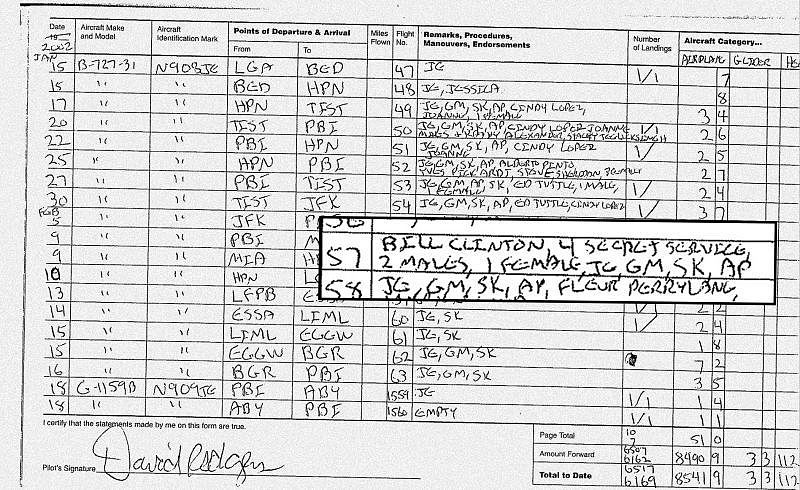 Date Aircraft Make and Model Aircraft Identification Mark Points of Departure & Arrival Miles Flown Flight No. Remarks, Procedures, Maneuvers, Endorsements Number of Landings Aircraft Category...
2002 From To AIRPLANE GLIDER
JAN
15 B-727-31 N908JE LGA BED 47 JE 1/1 7
15 " " BED HPN 48 JE, JESSICA 8
17 " " HPN TIST 49 JE, GM, SK, AP, CINDY LOPEZ, 3 4
JOANNE, 1 FEMALE
20 " " TIST PBI 50 JE, GM, SK, AP, CINDY LOPEZ, JOANNE 1/1 2 6
22 " " PBI HPN 51 JE, GM, SK, AP, CINDY LOPEZ 1/ 2 5
JOANNE
25 " " HPN PBI 52 JE, GM, SK, AP, ALBERTO PINTO 2 7
27 " " PBI TIST 53 JE, GM, AP, SK, ED TUTTLE, 1 MALE, 1/ 2 4
30 " " TIST JFK 54 JE, GM, SK, AP, ED TUTTLE, CINDY LOPEZ 1/ 3 7
FEB
5 " " JFK P
9 " " PBI M
9 " " MIA H
10 " " HPN L
13 " " LFPB E 2 2
57 BILL CLINTON, 4 SECRET SERVICE,
2 MALES, 1 FEMALE, JE, GM, SK, AP
58 JE, GM, SK, AP, FLEUR PERRY LANG,
14 " " ESSA LIML 60 JE, SK 1/ 2 4
15 " " LIML EGGW 61 JE, SK 1 8
15 " " EGGW BGR 62 JE, GM, SK 7 2
16 " " BGR PBI 63 JE, GM, SK 3 5
18 G-1159B N909JE PBI ABY 1559 JE 1/1 1 4
18 " " ABY PBI 1560 EMPTY 1/1 1 1
I certify that the statements made by me on this form are true.
Page Total 10 7 51 0
Amount Forward 6507 6162 8490 9 3 3 112
Pilot's Signature David Rodgers Total to Date 6517 6169 8541 9 3 3 112